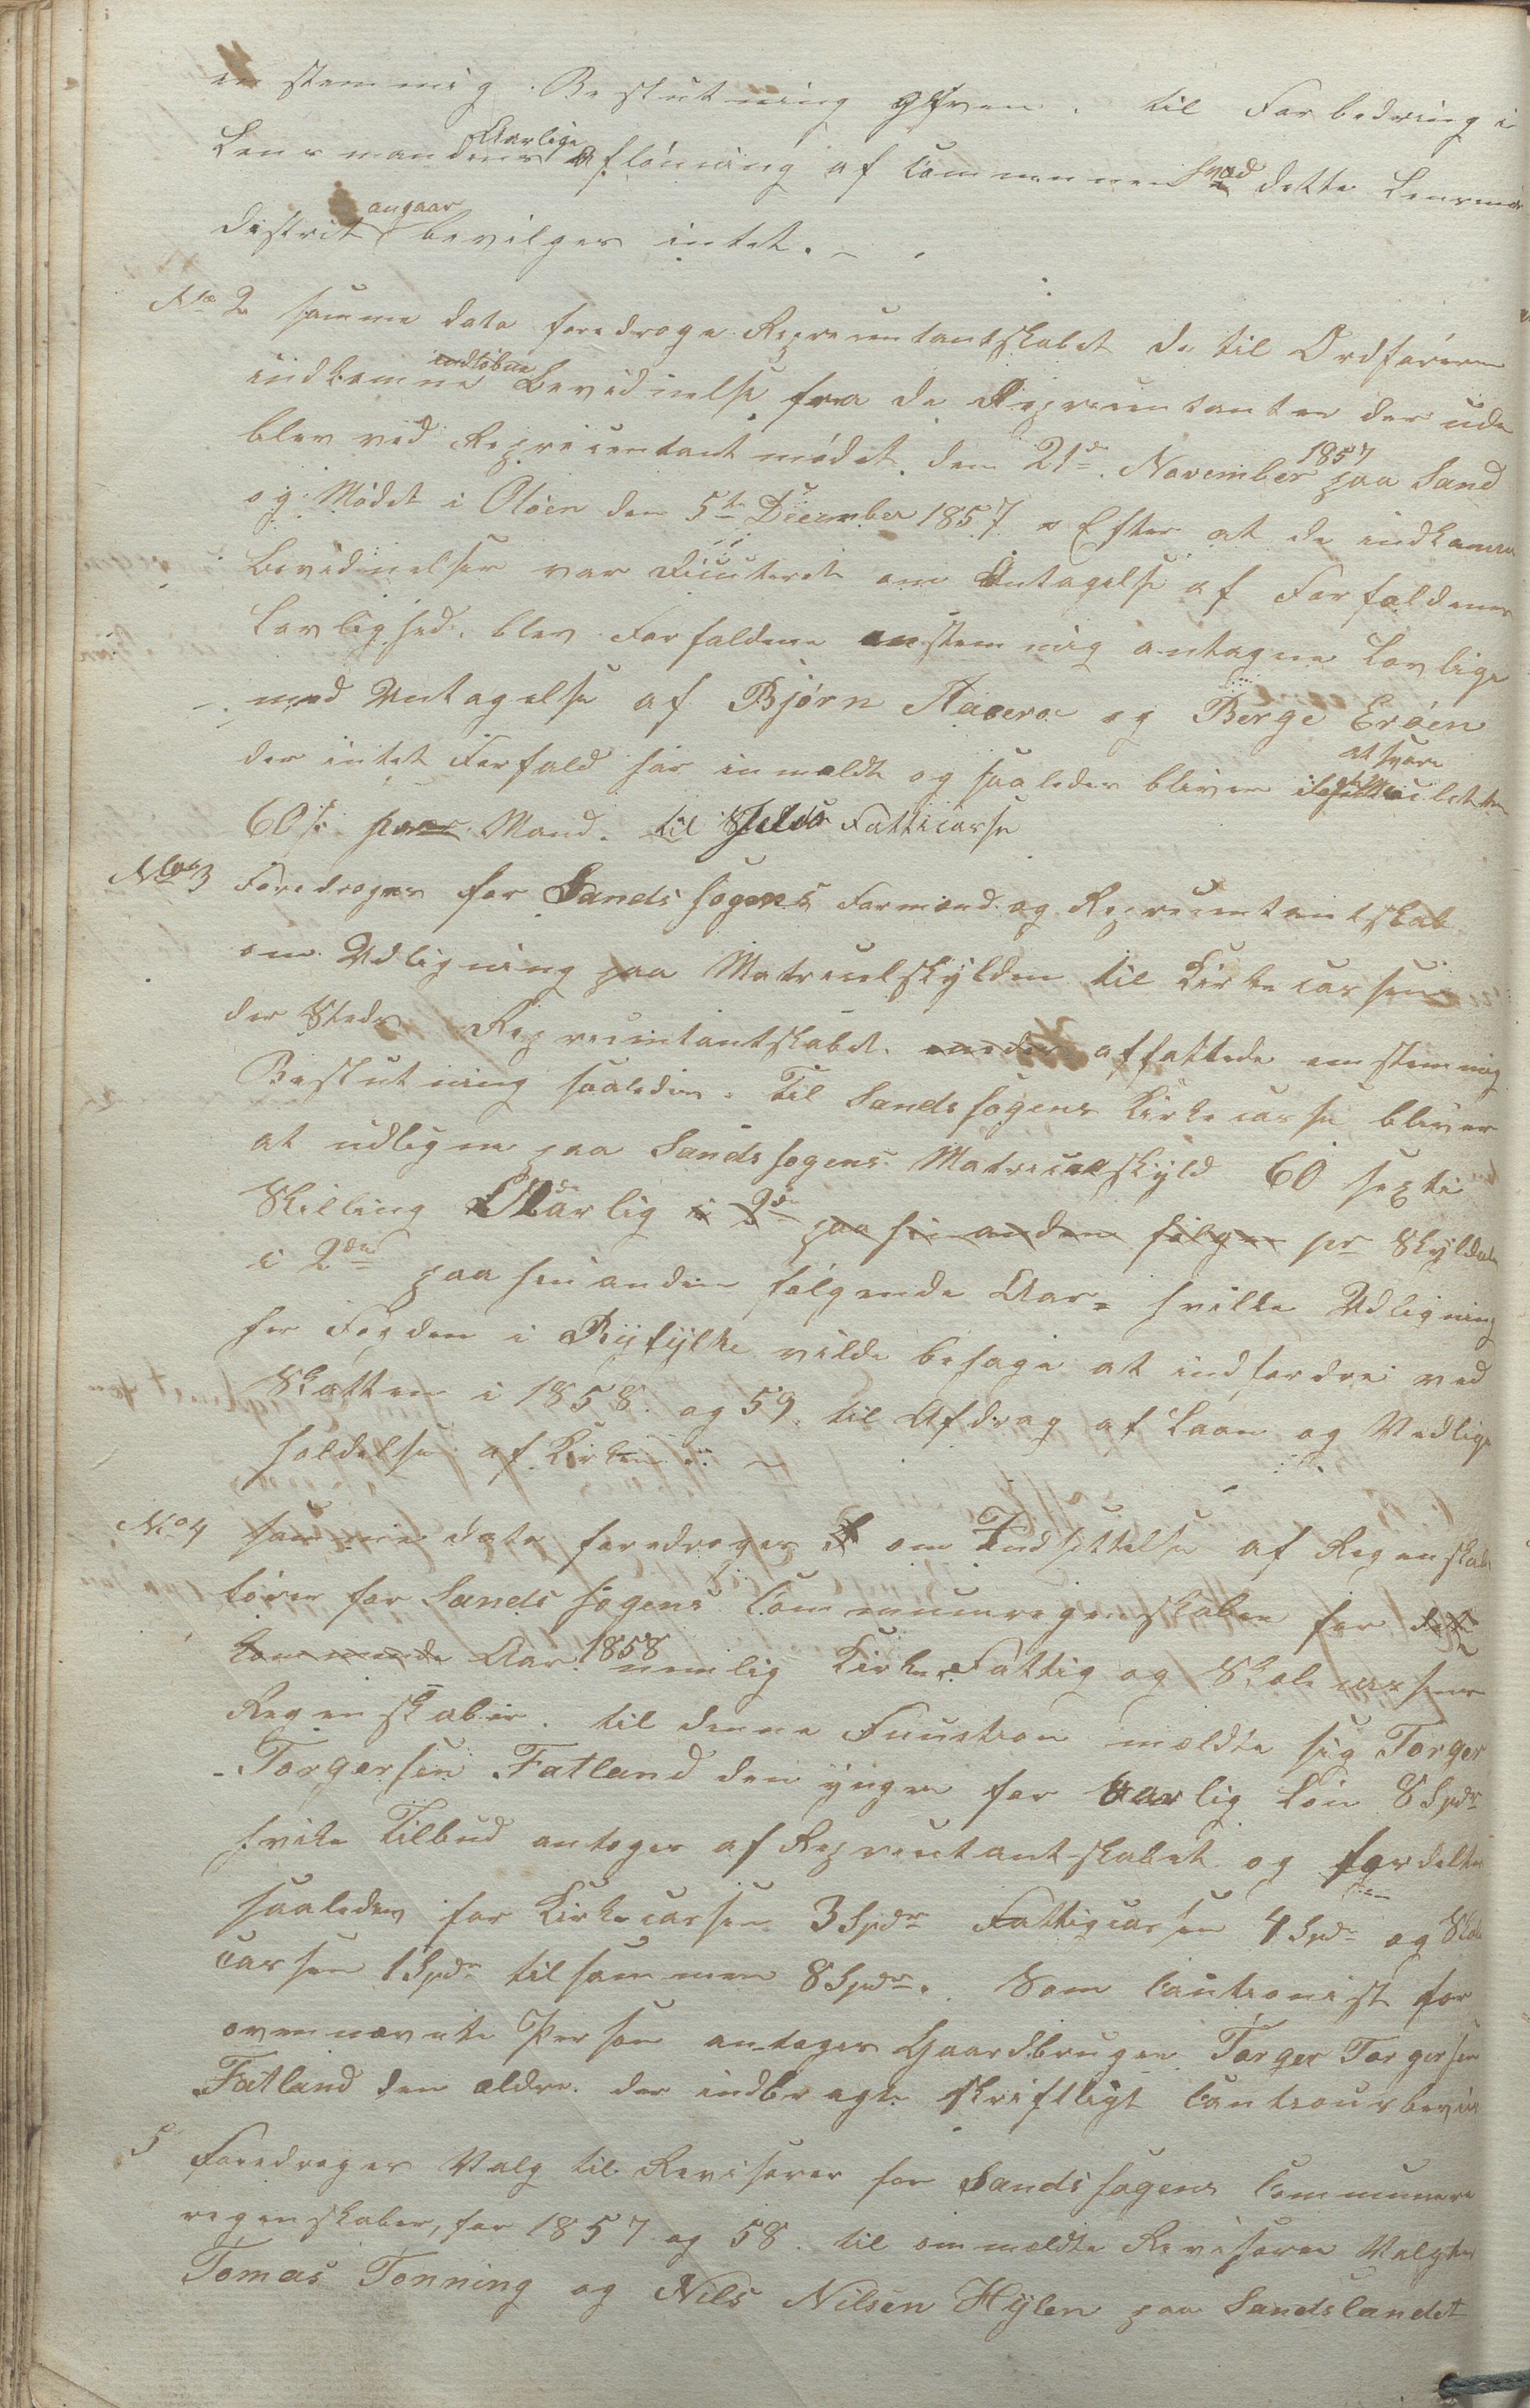 enstemmig Beslutning given. til Forbedring i
Lensmandens Aarlige Aflønning af Communen hvad dette Lensmands
distrikt angaar bevilges intet. —
No 2 samme dato foredroges Representantskabet de til Ordføreren
indkomne indløbne Bevidnelse fra de Representanter der ude
blev ved Represientant mødet den 21de November 1857 paa Sand
og Mødet i Oløen den 5te December 1857. Efter at de indkomne
Bevidnelser var diskuteret om Antagelse af Forfaldenes
Lovlighed. blev Forfaldene enstemmig antagne Lovlige
med Untagelse af Bjørn Aaserø og Berge Erøen
der intet Forfald har inmeldt og saaledes bliver at svare
60 s. per Mand. til Jelsø Fatticasse
No 3 Foredroges for Sands sogens Formænd og Represientantskab
om Udligning paa Matriculskylden til Kirkecassen
der Steds Represientantskabet affattede enstemmig
Beslutning saaledes. Til Sands sogens Kirkecasse bliver
at udligne paa Sands sogens Matriculskyld 60 sexti
Skilling Aarlig i 2de paa hinanden følgen pr Skyldda
i 2de paa hinanden følgende Aar. hvilke Udligning
hr Fogden i Ryfylke vilde behage at indfordre ved
Skatten i 1858. og 59. til Afdrag af Laan og Vedlige
holdelse af Kirken. —
No 4 samme dato foredroges om Indsettelse af Regenskabs
fører for Sands sogens Communeregenskaber for det
kommende Aar 1858 nemlig Kirke, Fattig og Skolecassens
Regenskaber. til denne Function meldte sig Torger
Torgersen Fatland den yngre for Aarlig Løn 8 Spdr
hvilke Tilbud antoges af Representantskabet og fordeltes
saaledes for Kirkecassen 3 Spdr Fattigcassen 4 Spdr og Skole
cassen 1 Spdr tilsammen 8 Spdr. Som Cautionist for
ovennevnte Person antoges Gaardbruger Torger Torgersen
Fatland den ældre. der indbragte skriftligt Cautionsbevis
5 Foredroges Valg til Revisorer for Sands sogens Communere
regenskaber, for 1857 og 58. til ommeldte Revisorer Valgtes
Tomas Tonning og Nils Nilsen Hylen paa Sandslandet